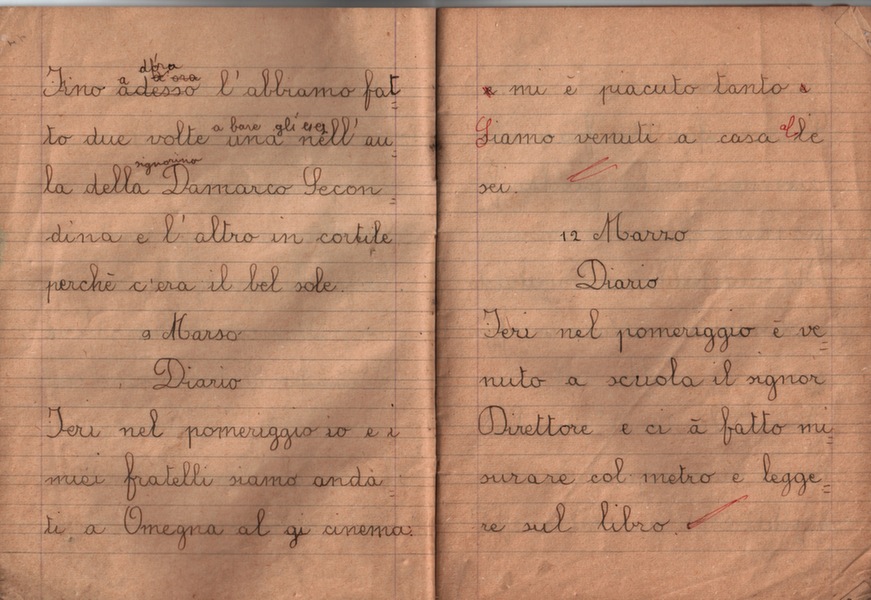 Fino adesso l'abbiamo fat
a d'ora
to due volte una nell'au
a bare gli
la della Damarco Secon
signorino
dina e l'altro in cortile
perchè c'era il bel sole.
9 Marso
Diario
Ieri nel pomeriggio io e i
miei fratelli siamo andà
ti a Omegna al gi cinema:
e mi è piacuto tanto e
Siamo venuti a casa alle
sei.
12 Marzo
Diario
Ieri nel pomeriggio è ve
nuto a scuola il signor
Direttore e ci à fatto mi
surare col metro e legge
re sul libro.